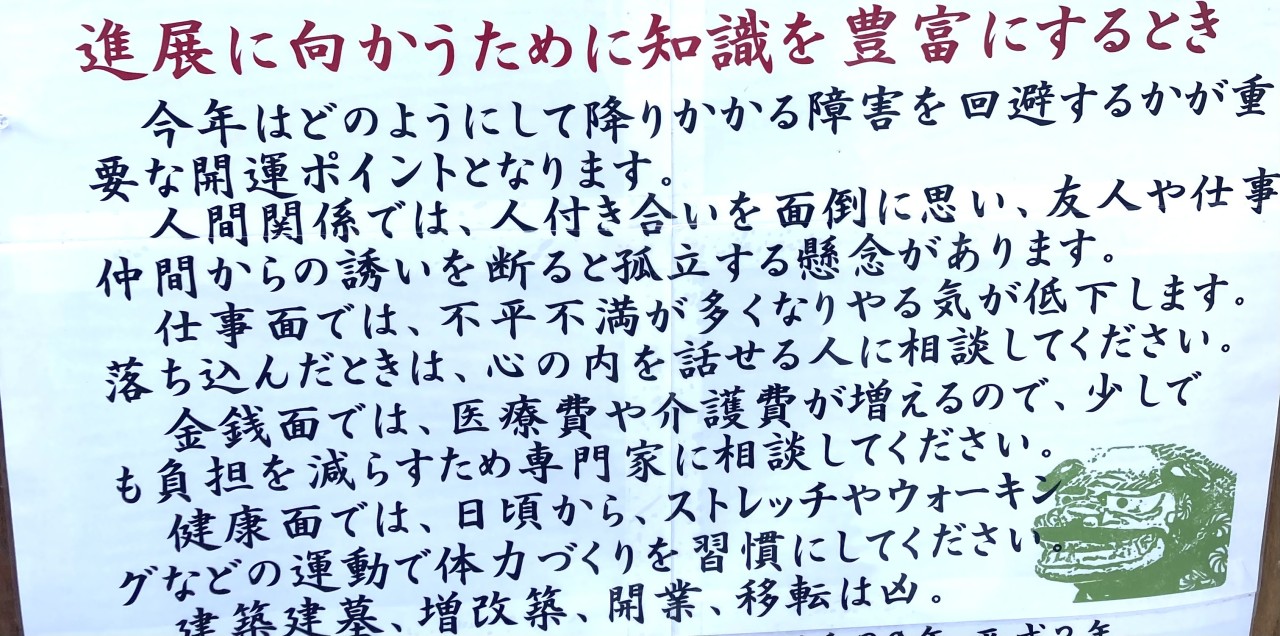 進展に向かうために知識を豊富にするとき
今年はどのようにして降りかかる障害を回避するかが重
要な開運ポイントとなります。
人間関係では、人付き合いを面倒に思い、友人や仕事
仲間からの誘いを断ると孤立する懸念があります。
仕事面では、不平不満が多くなりやる気が低下します。
落ち込んだときは、心の内を話せる人に相談してください。
金銭面では、医療費や介護費が増えるので、少しで
も負担を減らすため専門家に相談してください。
健康面では、日頃から、ストレッチやウォーキン
グなどの運動で体力づくりを習慣にしてください。
建築建墓、増改築、開業、移転は凶。